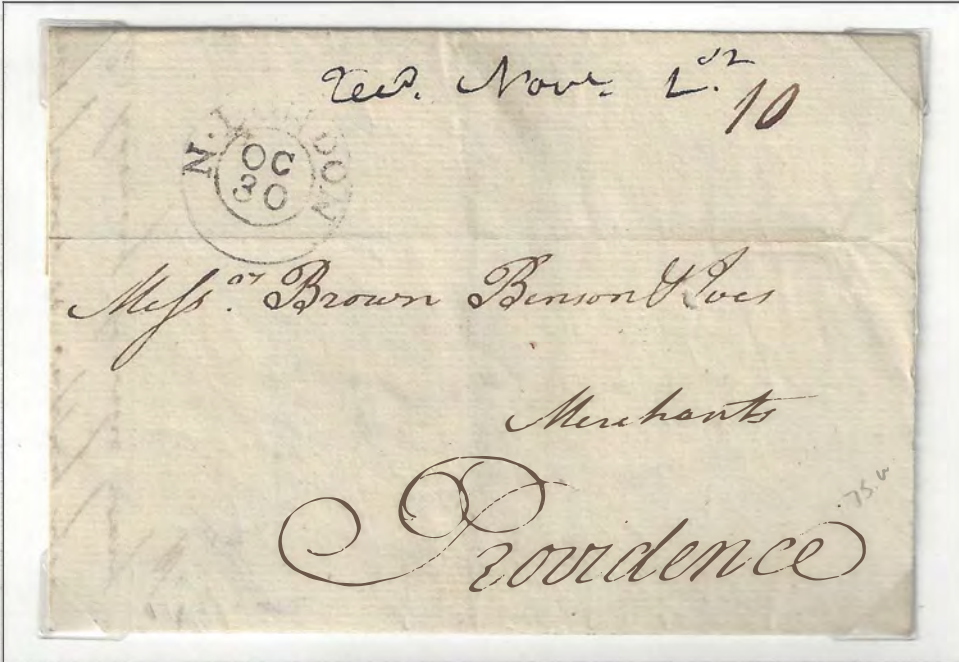 Recd. Novr.
10
N. LONDON
OC
30
Messrs. Brown Benson & Ives
Merchants
Providence